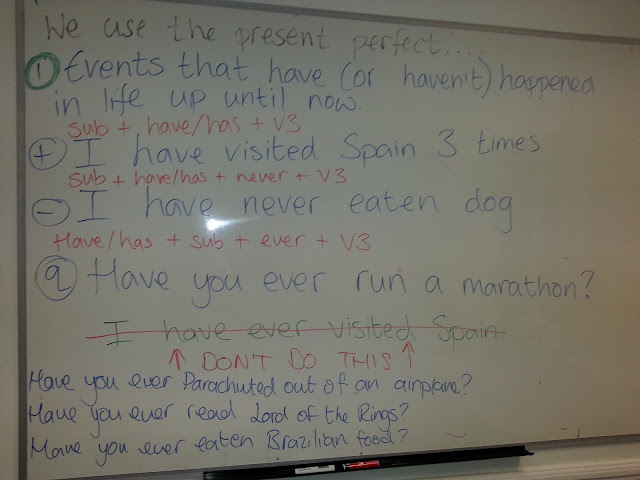 We use the present perfect....
① Events that have (or haven't) happened
in life up until now.
Sub + have/has + V3
+ I have visited Spain 3 times
Sub + have/has + never + V3
- I have never eaten dog
Have/has + sub + ever + V3
q Have you ever run a marathon?
I have ever visited Spain.
↑ DON'T DO THIS ↑
Have you ever Parachuted out of an airplane?
Have you ever read Lord of the Rings?
Have you ever eaten Brazilian food?